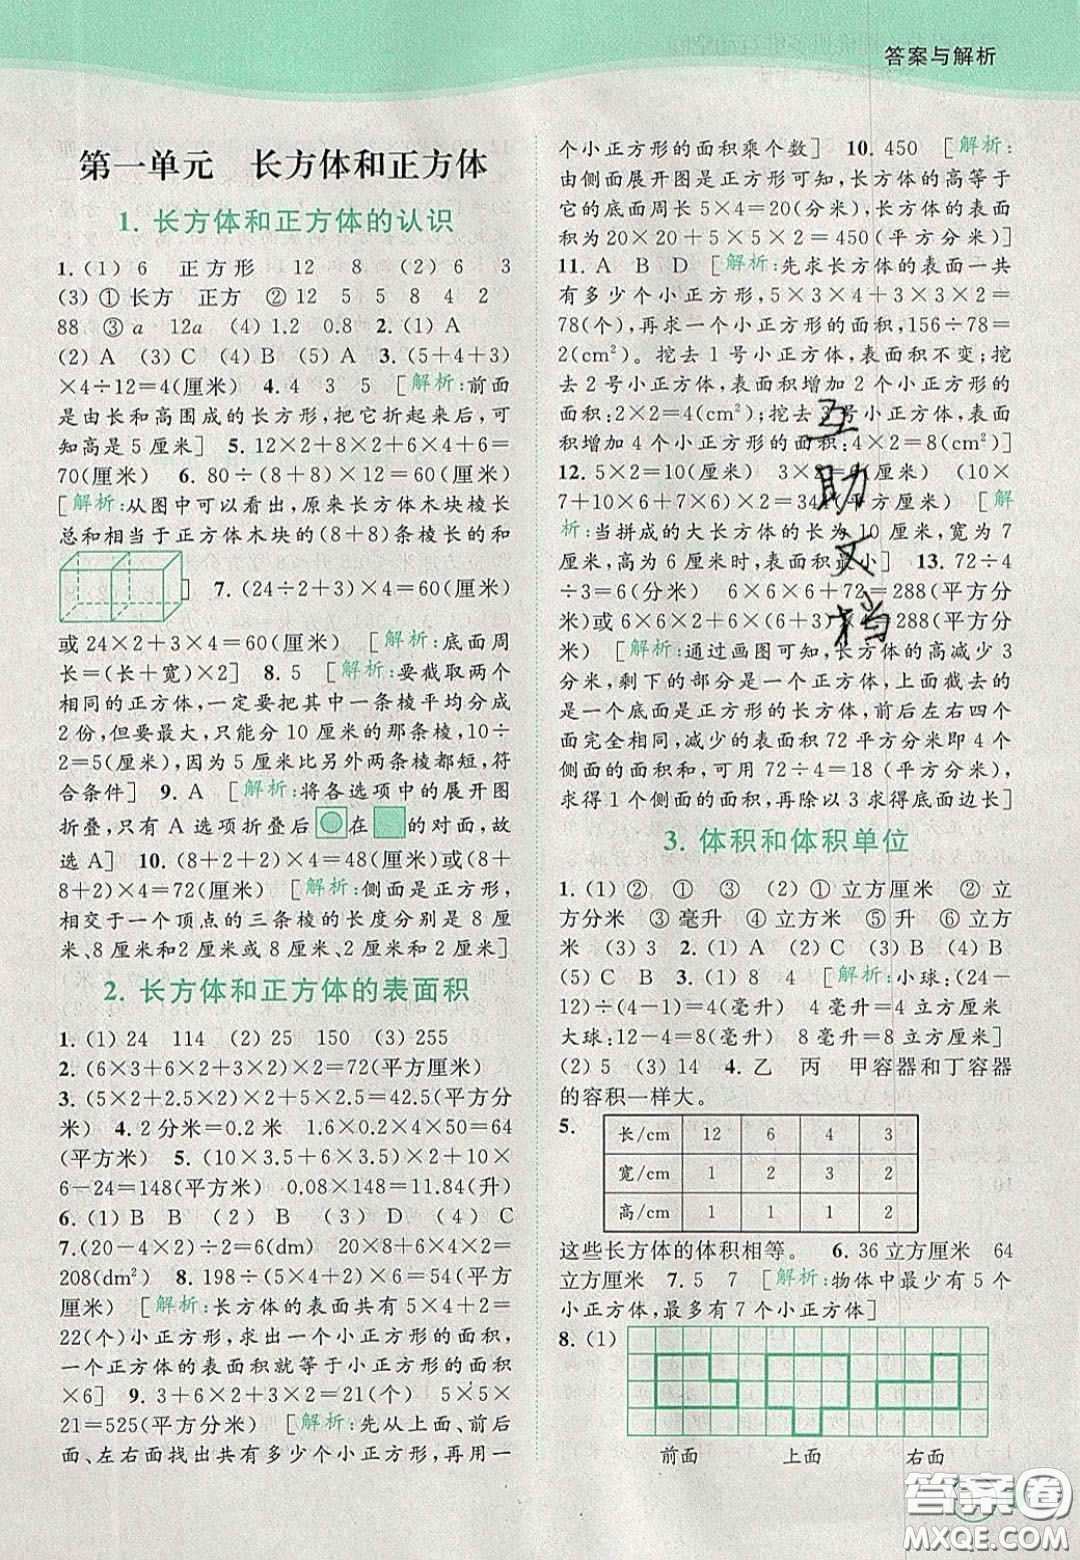 答案与解析
第一单元 长方体和正方体
1. 长方体和正方体的认识
1.(1)6 正方形 12 8 (2)6 3
(3)①长方 正方 ②12 5 5 8 4 2
88 ③a 12a (4)1.2 0.8 2.(1)A
(2)A (3)C (4)B (5)A 3.(5+4+3)
×4÷12=4(厘米) 4.4 3 5 [解析:前面
是由长和高围成的长方形,把它折起来后,可
知高是5厘米] 5.12×2+8×2+6×4+6=
70(厘米) 6.80÷(8+8)×12=60(厘米)
[解析:从图中可以看出,原来长方体木块棱长
总和相当于正方体木块的(8+8)条棱长的和
] 7.(24÷2+3)×4=60(厘米)
或24×2+3×4=60(厘米) [解析:底面周
长=(长+宽)×2] 8.5 [解析:要截取两个
相同的正方体,一定要把其中一条棱平均分成
2份,要最大,只能分10厘米的那条棱,10÷
2=5(厘米),因为5厘米比另外两条棱都短,符
合条件] 9.A [解析:将各选项中的展开图
折叠,只有A选项折叠后在的对面,故
选A] 10.(8+2+2)×4=48(厘米)或(8+
8+2)×4=72(厘米) [解析:侧面是正方形,
相交于一个顶点的三条棱的长度分别是8厘
米、8厘米和2厘米或8厘米、2厘米和2厘米]
2. 长方体和正方体的表面积
1.(1)24 114 (2)25 150 (3)255
2.(6×3+6×2+3×2)×2=72(平方厘米)
3.(5×2+2.5×2)×2+5×2.5=42.5(平方分
米) 4.2分米=0.2米 1.6×0.2×4×50=64
(平方米) 5.(10×3.5+6×3.5)×2+10×
6-24=148(平方米) 0.08×148=11.84(升)
6.(1)B B (2)B (3)D (4)C
7.(20-4×2)÷2=6(dm) 20×8+6×4×2=
208(dm²) 8.198÷(5×4+2)×6=54(平方
厘米) [解析:长方体的表面共有5×4+2=
22(个)小正方形,求出一个小正方形的面积,
一个正方体的表面积就等于小正方形的面积
×6] 9.3+6×2+3×2=21(个) 5×5×
21=525(平方分米) [解析:先从上面、前后
面、左右面找出共有多少个小正方形,再用一
个小正方形的面积乘个数] 10.450 [解析:
由侧面展开图是正方形可知,长方体的高等于
它的底面周长5×4=20(分米),长方体的表面
积为20×20+5×5×2=450(平方分米)]
11.A B D [解析:先求长方体的表面一共
有多少个小正方形,5×3×4+3×3×2=
78(个),再求一个小正方形的面积,156÷78=
2(cm²)。挖去1号小正方体,表面积不变;挖
去2号小正方体,表面积增加2个小正方形的
面积:2×2=4(cm²);挖去3号小正方体,表面
积增加4个小正方形的面积:4×2=8(cm²)]
12.5×2=10(厘米) 3×2=6(厘米) (10×
7+10×6+7×6)×2=344(平方厘米) [解
析:当拼成的大长方体的长为10厘米,宽为7
厘米,高为6厘米时,表面积最小] 13.72÷4
÷3=6(分米) 6×6×6+72=288(平方分
米)或6×6×2+6×(6+3)×4=288(平方分
米) [解析:通过画图可知,长方体的高减少3
分米,剩下的部分是一个正方体,上面截去的
是一个底面是正方形的长方体,前后左右四个
面完全相同,减少的表面积72平方分米即4个
侧面的面积和,可用72÷4=18(平方分米),
求得1个侧面的面积,再除以3求得底面边长]
3. 体积和体积单位
1.(1)② ① ③ (2)①立方厘米 ②立
方分米 ③毫升 ④立方米 ⑤升 ⑥立方
米 (3)3 2.(1)A (2)C (3)A (4)B
(5)C B 3.(1)8 4 [解析:小球:(24-
12)÷(4-1)=4(毫升) 4毫升=4立方厘米
大球:12-4=8(毫升) 8毫升=8立方厘米]
(2)5 (3)14 4.乙 丙 甲容器和丁容器
的容积一样大。
5.
长/cm 12 6 4 3
宽/cm 1 2 3 2
高/cm 1 1 1 2
这些长方体的体积相等。 6.36立方厘米 64
立方厘米 7.5 7 [解析:物体中最少有5个
小正方体,最多有7个小正方体]
8.(1)
前面 上面 右面
互助文档
答案圈
MXQE.COM